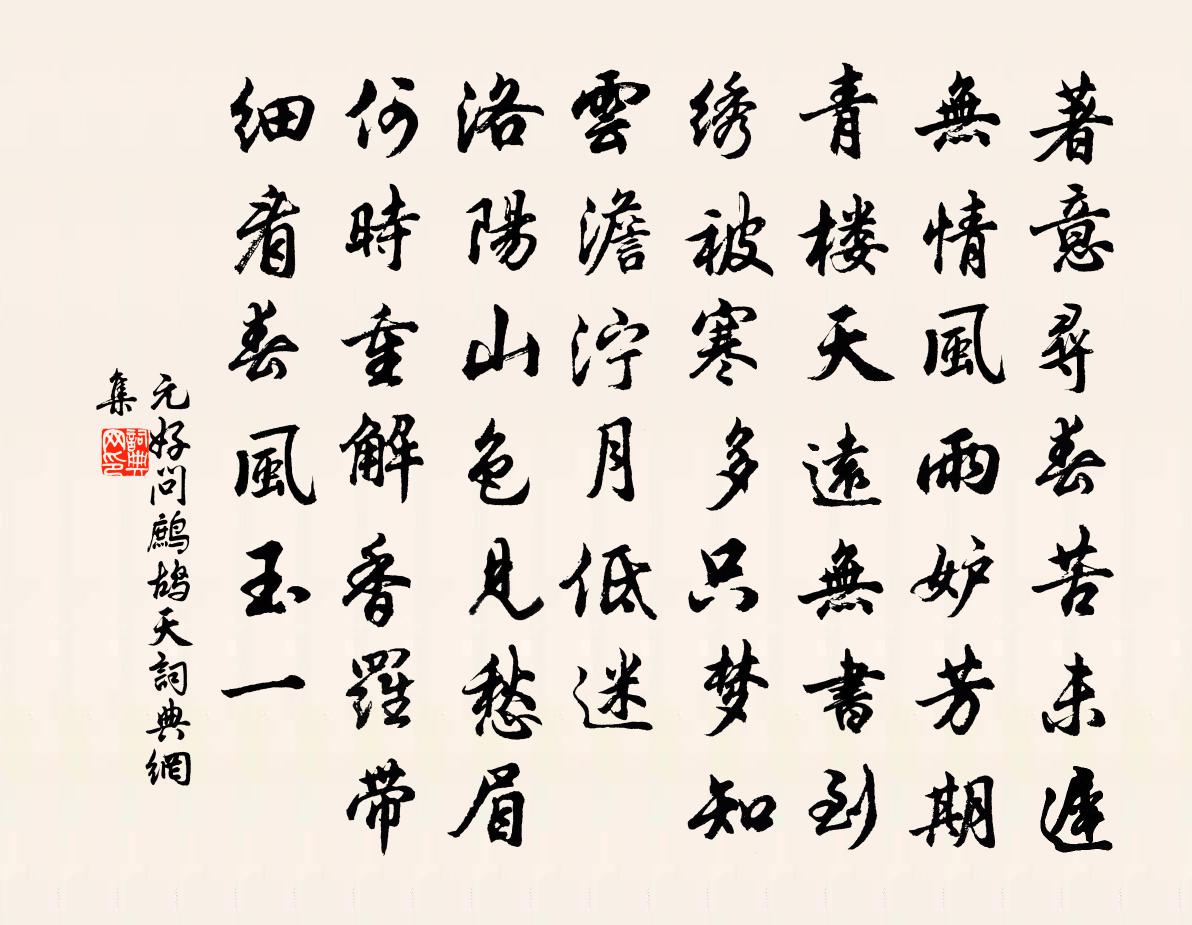 著意尋春苦未遲
無情風雨妒芳期
青楼天遠無書到
绣被寒多只梦知
雲澹泞月低迷
洛陽山色見愁眉
何時重解香羅帶
细看春風玉一
元好問鷓鴣天詞典網
集
詞典
网印